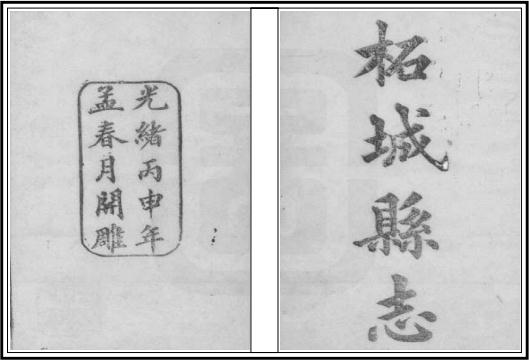 柘城縣志
光緒丙申年
孟春月開雕